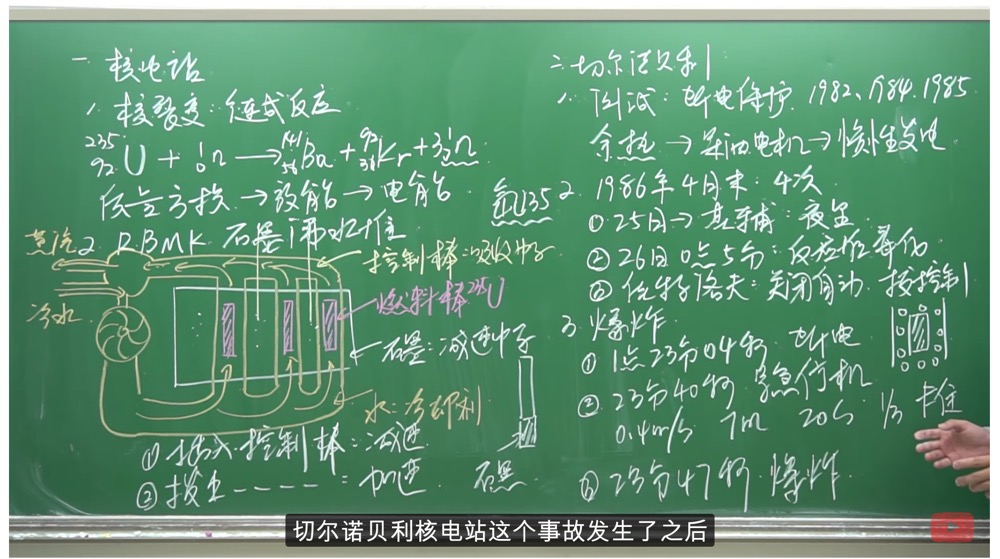 一 核电站
1. 核裂变：链式反应
²³⁵₉₂U + ¹₀n → ¹⁴¹₅₆Ba + ⁹²₃₆Kr + 3¹₀n
质量亏损 → 放能 → 电能
2. RBMK 石墨沸水堆
蒸汽
冷水
控制棒：吸收中子
燃料棒 ²³⁵U
石墨：减速中子
水：冷却剂
① 插入控制棒：减速
② 拔出－－－－：加速
石墨
氙135
二、切尔诺贝利
1. 测试：断电保护 1982、1984、1985
余热 → 柴油电机 → 惯性发电
2. 1986年4月末：4次
① 25日 → 基辅：夜里
② 26日0点5分：反应
③ 佳特洛夫：关闭自动 拔控制
3 爆炸
① 1点23分04秒 断电
② 23分40秒 紧急停机
0.4m/s 7m 20s 1/3 卡住
③ 23分47秒 爆炸
切尔诺贝利核电站这个事故发生了之后